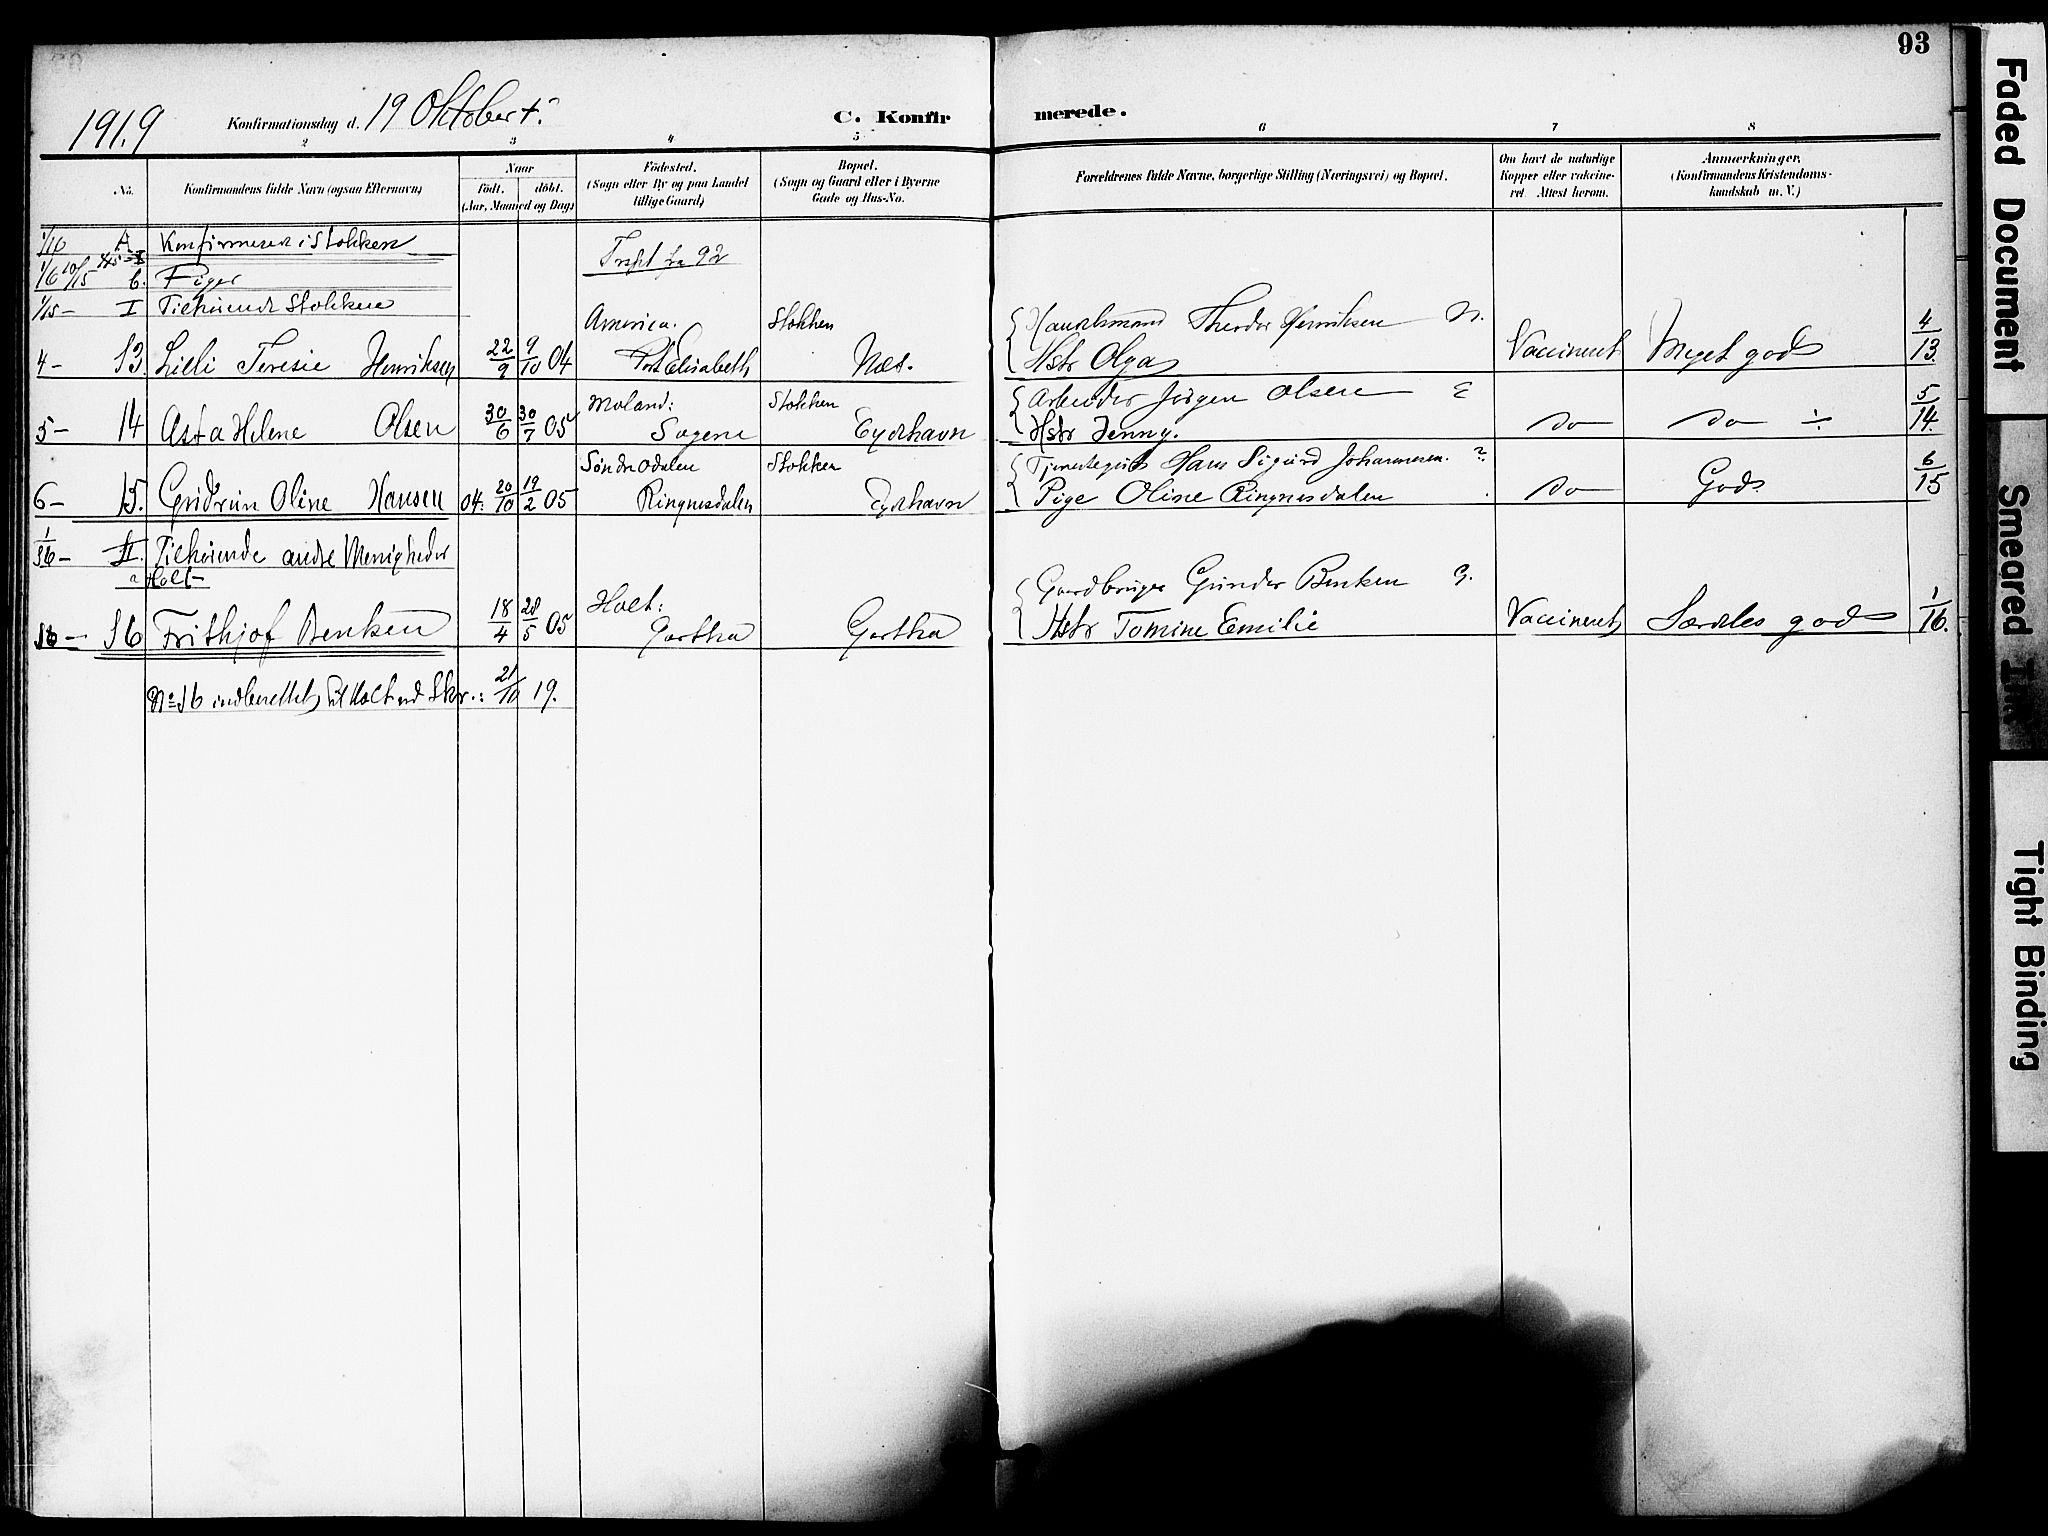 93
1919 Konfirmationsdag d. 19 Oktober C. Konfirmerede.
2 3 4 5 6 7 8
No. Konfirmandens fulde Navn (ogsaa Efternavn) Naar födt. döbt. (Aar, Maaned og Dag) Födested. (Sogn eller By og paa Landet tillige Gaard) Bopæl. (Sogn og Gaard eller i Byerne Gade og Hus-No. Forældrenes fulde Navne, borgerlige Stilling (Næringsvei) og Bopæl. Om havt de naturlige Kopper eller vakcineret Attest herom. Anmærkninger. (Konfirmandens Kristendomskundskab m. V.)
1/16 A Konfirmeret i Stokken
b. Piger Trspt fra 92
1/15 – I Tilhørende Stokken
America. Stokken Handelsmand Theodor Henriksen N. 4
4 – 13. Lilli Teresie Henriksen 22/9 9/10 04 Port Elisabeth Næs. Hstr Olga Vaccineret Meget god 13.
Moland: Stokken Arbeider Jørgen Olsen E 5
5 – 14 Asta Helene Olsen 30/6 30/7 05 Sagene Eydehavn Hstr Jenny. do do ÷ 14.
Søndre Odalen Stokken Tjenestegut Hans Sigurd Johannesen. 6
6 – 15. Gudrun Oline Hansen 04. 20/10 19/2 05 Ringnesdalen Eydehavn Pige Oline Ringnesdalen do God. 15
1/16 – II. Tilhørende andre Menigheder
a Holt
Holt: Gaardbruger Gunder Benken G. 1
16 – 16 Frithjof Benken 18/4 28/5 05 Gjertha Gjertha Hstr Tomine Emilie Vaccineret Særdeles god 16.
No 16 indberettet til Holt ved Skr.: 21/10 19.
Faded Document
Smeared Ink
Tight Binding